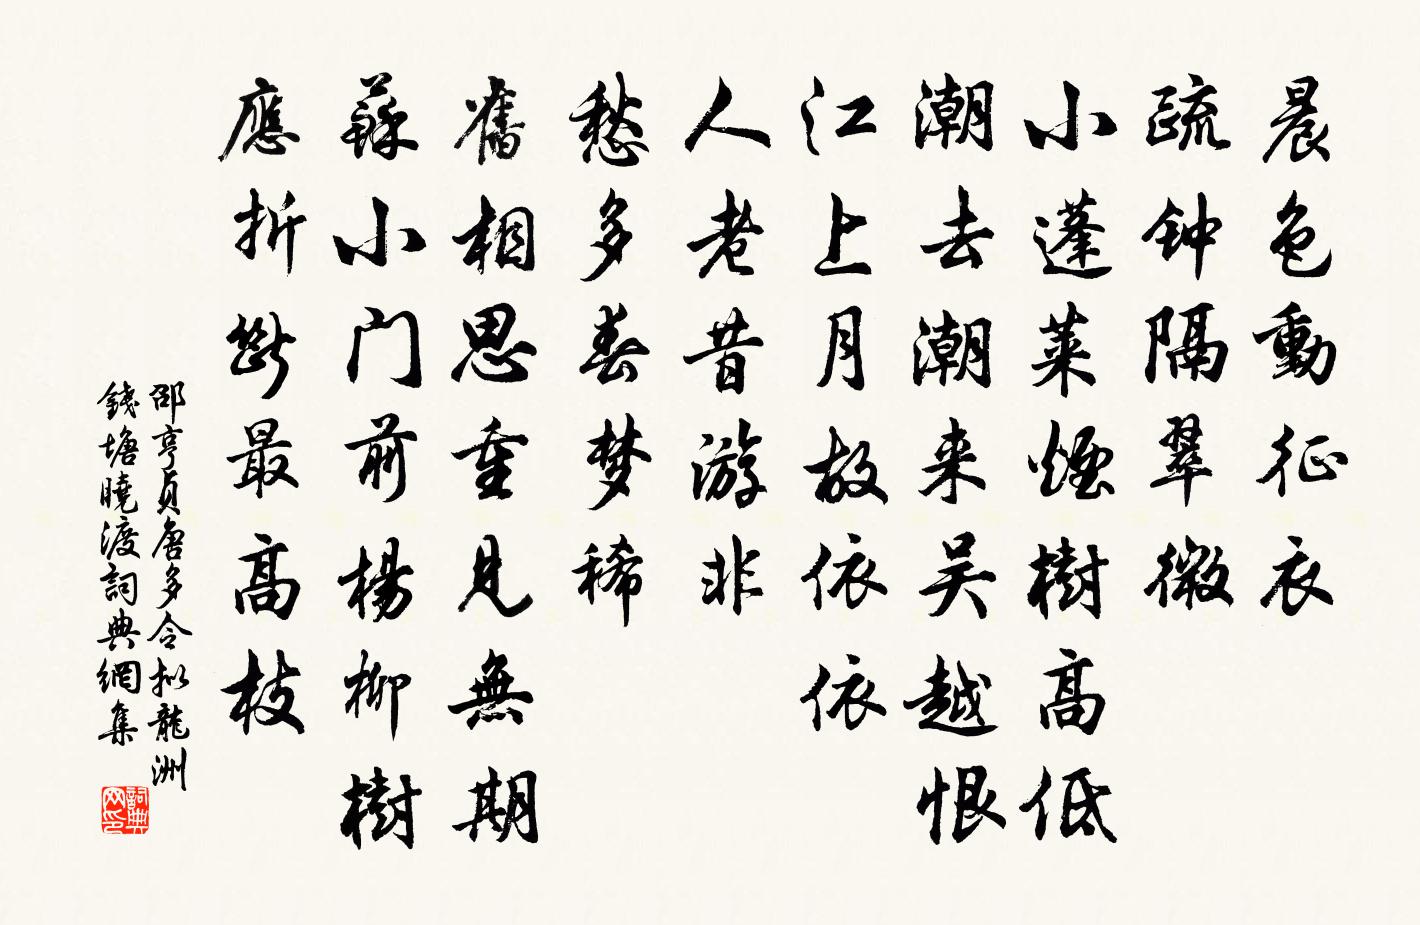 晨色動征衣
疏钟隔翠微
小蓬莱煙樹高低
潮去潮来吴越恨
江上月故依依
人老昔游非
愁多春梦稀
舊相思重见無期
蘇小门前楊柳樹
應折斷最高枝
邵亨貞唐多令拟龍洲
錢塘曉渡詞典網集
詞典网印